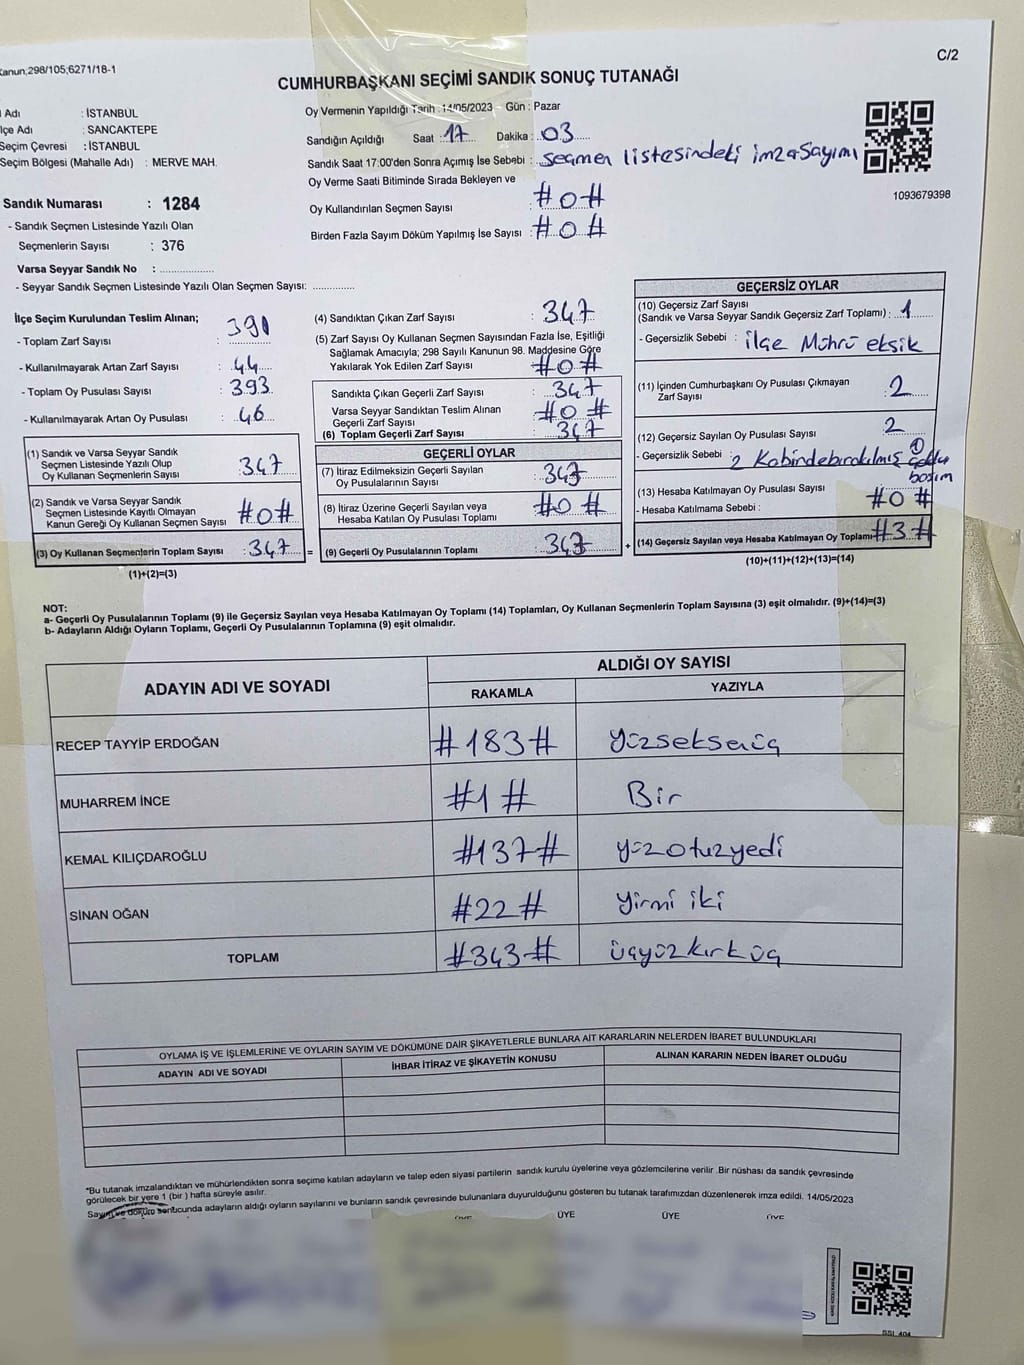 Kanun;298/105;6271/18-1
C/2
CUMHURBAŞKANI SEÇİMİ SANDIK SONUÇ TUTANAĞI
Adı : İSTANBUL
İlçe Adı : SANCAKTEPE
Seçim Çevresi : İSTANBUL
Seçim Bölgesi (Mahalle Adı) : MERVE MAH.
Sandık Numarası : 1284
- Sandık Seçmen Listesinde Yazılı Olan
Seçmenlerin Sayısı : 376
Varsa Seyyar Sandık No :
- Seyyar Sandık Seçmen Listesinde Yazılı Olan Seçmen Sayısı:
Oy Vermenin Yapıldığı Tarih : 14/05/2023 Gün : Pazar
Sandığın Açıldığı Saat : 17 Dakika : 03
Sandık Saat 17:00'den Sonra Açımış İse Sebebi : Seçmen listesindeki imza sayımı
Oy Verme Saati Bitiminde Sırada Bekleyen ve
Oy Kullandırılan Seçmen Sayısı : #0#
Birden Fazla Sayım Döküm Yapılmış İse Sayısı : #0#
1093679398
İlçe Seçim Kurulundan Teslim Alınan;
- Toplam Zarf Sayısı : 391
- Kullanılmayarak Artan Zarf Sayısı : 44
- Toplam Oy Pusulası Sayısı : 393
- Kullanılmayarak Artan Oy Pusulası : 46
(1) Sandık ve Varsa Seyyar Sandık
Seçmen Listesinde Yazılı Olup
Oy Kullanan Seçmenlerin Sayısı : 347
(2) Sandık ve Varsa Seyyar Sandık
Seçmen Listesinde Kayıtlı Olmayan
Kanun Gereği Oy Kullanan Seçmen Sayısı : #0#
(3) Oy Kullanan Seçmenlerin Toplam Sayısı : 347 =
(1)+(2)=(3)
(4) Sandıktan Çıkan Zarf Sayısı : 347
(5) Zarf Sayısı Oy Kullanan Seçmen Sayısından Fazla İse, Eşitliği
Sağlamak Amacıyla; 298 Sayılı Kanunun 98. Maddesine Göre
Yakılarak Yok Edilen Zarf Sayısı : #0#
Sandıkta Çıkan Geçerli Zarf Sayısı : 347
Varsa Seyyar Sandıktan Teslim Alınan
Geçerli Zarf Sayısı : #0#
(6) Toplam Geçerli Zarf Sayısı : 347
GEÇERLİ OYLAR
(7) İtiraz Edilmeksizin Geçerli Sayılan
Oy Pusulalarının Sayısı : 343
(8) İtiraz Üzerine Geçerli Sayılan veya
Hesaba Katılan Oy Pusulası Toplamı : #0#
(9) Geçerli Oy Pusulalarının Toplamı : 343 +
GEÇERSİZ OYLAR
(10) Geçersiz Zarf Sayısı
(Sandık ve Varsa Seyyar Sandık Geçersiz Zarf Toplamı) : 1
- Geçersizlik Sebebi : ilçe Mührü eksik
(11) İçinden Cumhurbaşkanı Oy Pusulası Çıkmayan
Zarf Sayısı : 2
(12) Geçersiz Sayılan Oy Pusulası Sayısı : 2
- Geçersizlik Sebebi : 2 Kabinde bırakılmış ① çoklu
basım
(13) Hesaba Katılmayan Oy Pusulası Sayısı : #0#
- Hesaba Katılmama Sebebi :
(14) Geçersiz Sayılan veya Hesaba Katılmayan Oy Toplamı #3#
(10)+(11)+(12)+(13)=(14)
NOT:
a- Geçerli Oy Pusulalarının Toplamı (9) ile Geçersiz Sayılan veya Hesaba Katılmayan Oy Toplamı (14) Toplamları, Oy Kullanan Seçmenlerin Toplam Sayısına (3) eşit olmalıdır. (9)+(14)=(3)
b- Adayların Aldığı Oyların Toplamı, Geçerli Oy Pusulalarının Toplamına (9) eşit olmalıdır.
ADAYIN ADI VE SOYADI
ALDIĞI OY SAYISI
RAKAMLA YAZIYLA
RECEP TAYYİP ERDOĞAN #183# yüzseksenüç
MUHARREM İNCE #1# Bir
KEMAL KILIÇDAROĞLU #137# yüzotuzyedi
SİNAN OĞAN #22# yirmi iki
TOPLAM #343# üçyüzkırküç
OYLAMA İŞ VE İŞLEMLERİNE VE OYLARIN SAYIM VE DÖKÜMÜNE DAİR ŞİKAYETLERLE BUNLARA AİT KARARLARIN NELERDEN İBARET BULUNDUKLARI
ADAYIN ADI VE SOYADI İHBAR İTİRAZ VE ŞİKAYETİN KONUSU ALINAN KARARIN NEDEN İBARET OLDUĞU
*Bu tutanak imzalandıktan ve mühürlendikten sonra seçime katılan adayların ve talep eden siyasi partilerin sandık kurulu üyelerine veya gözlemcilerine verilir .Bir nüshası da sandık çevresinde
görülecek bir yere 1 (bir ) hafta süreyle asılır.
Sayım ve döküm sonucunda adayların aldığı oyların sayılarını ve bunların sandık çevresinde bulunanlara duyurulduğunu gösteren bu tutanak tarafımızdan düzenlenerek imza edildi. 14/05/2023
ÜYE ÜYE ÜYE ÜYE